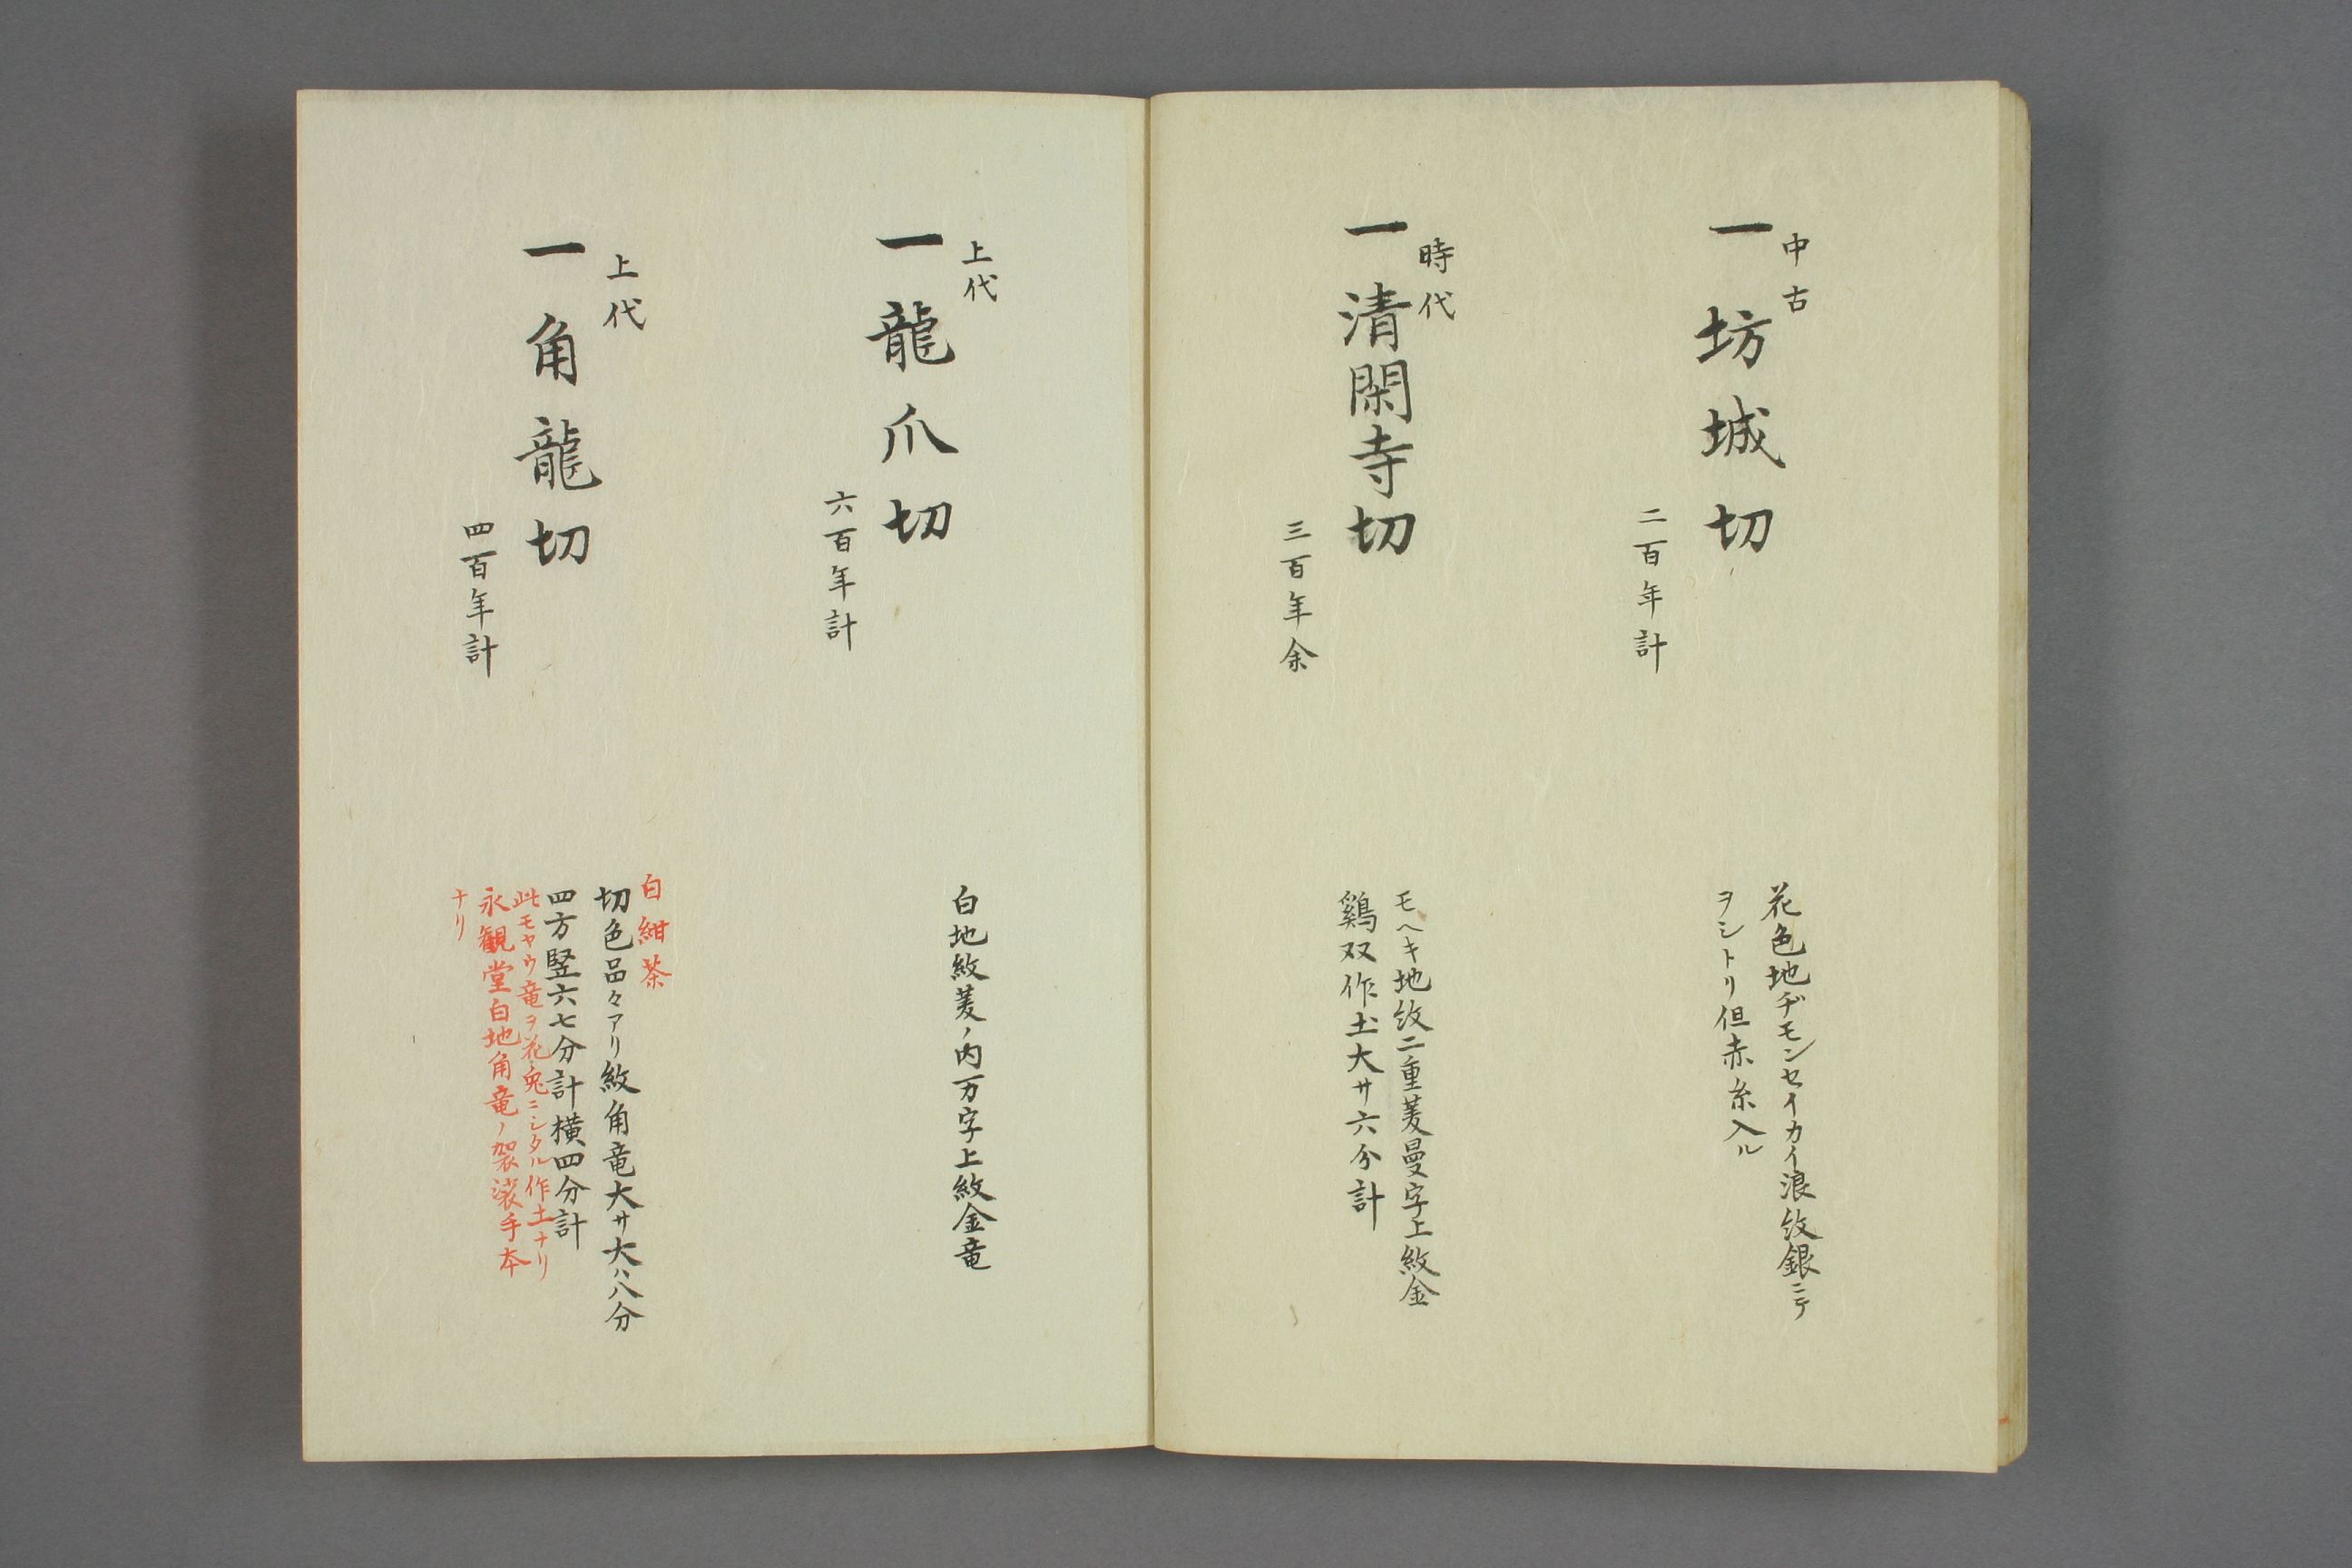 中古
一 坊城切
二百年計
花色地ヂモンセイカイ浪紋銀ニテ
ヲシトリ但赤糸入ル
時代
一 清閑寺切
三百年余
モヘキ地紋二重菱曼字上紋金
鷄双作土大サ六分計
上代
一 龍爪切
六百年計
白地紋菱ノ内万字上紋金竜
上代
一 角龍切
四百年計
白紺茶
切色品々アリ紋角竜大サ大ハ八分
四方竪六七分計横四分計
此モヤウ竜ヲ花ノ兎ニシタル作土ナリ
永観堂白地角竜ノ袈裟手本
ナリ